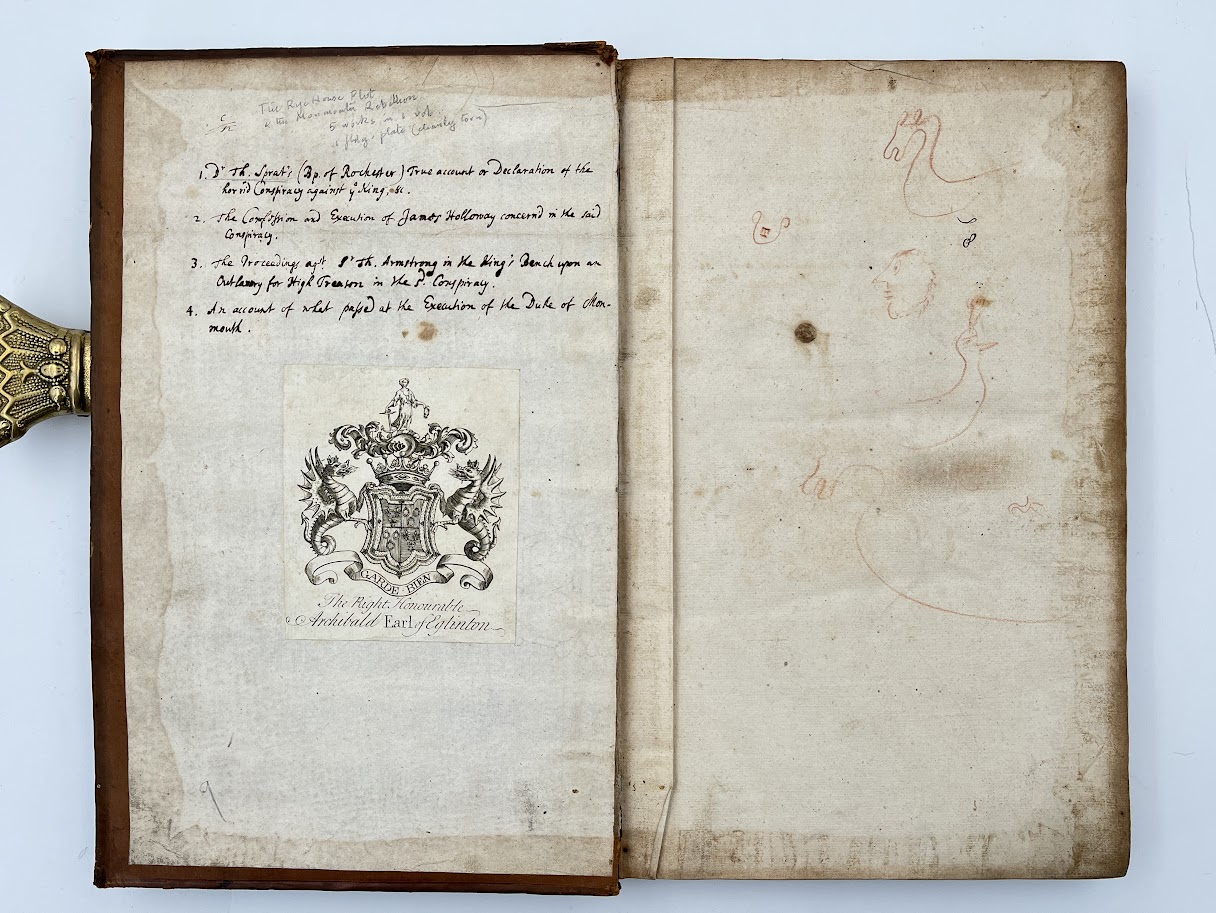 c/n
The Rye House Plot
& the Monmouth Rebellion
5 works in 1 vol.
fldg. plate (cleanly torn)
1. Dr. Th. Sprat's (Bp. of Rochester) True account or Declaration of the
horrid Conspiracy against ye King, &c.
2. The Confession and Execution of James Holloway concernd in the said
Conspiracy.
3. The Proceedings agst Sr Th. Armstrong in the King's Bench upon an
Outlawry for High Treason in the sd Conspiracy.
4. An account of what passed at the Execution of the Duke of Mon-
mouth.
GARDE BIEN
The Right Honourable
Archibald Earl of Eglinton